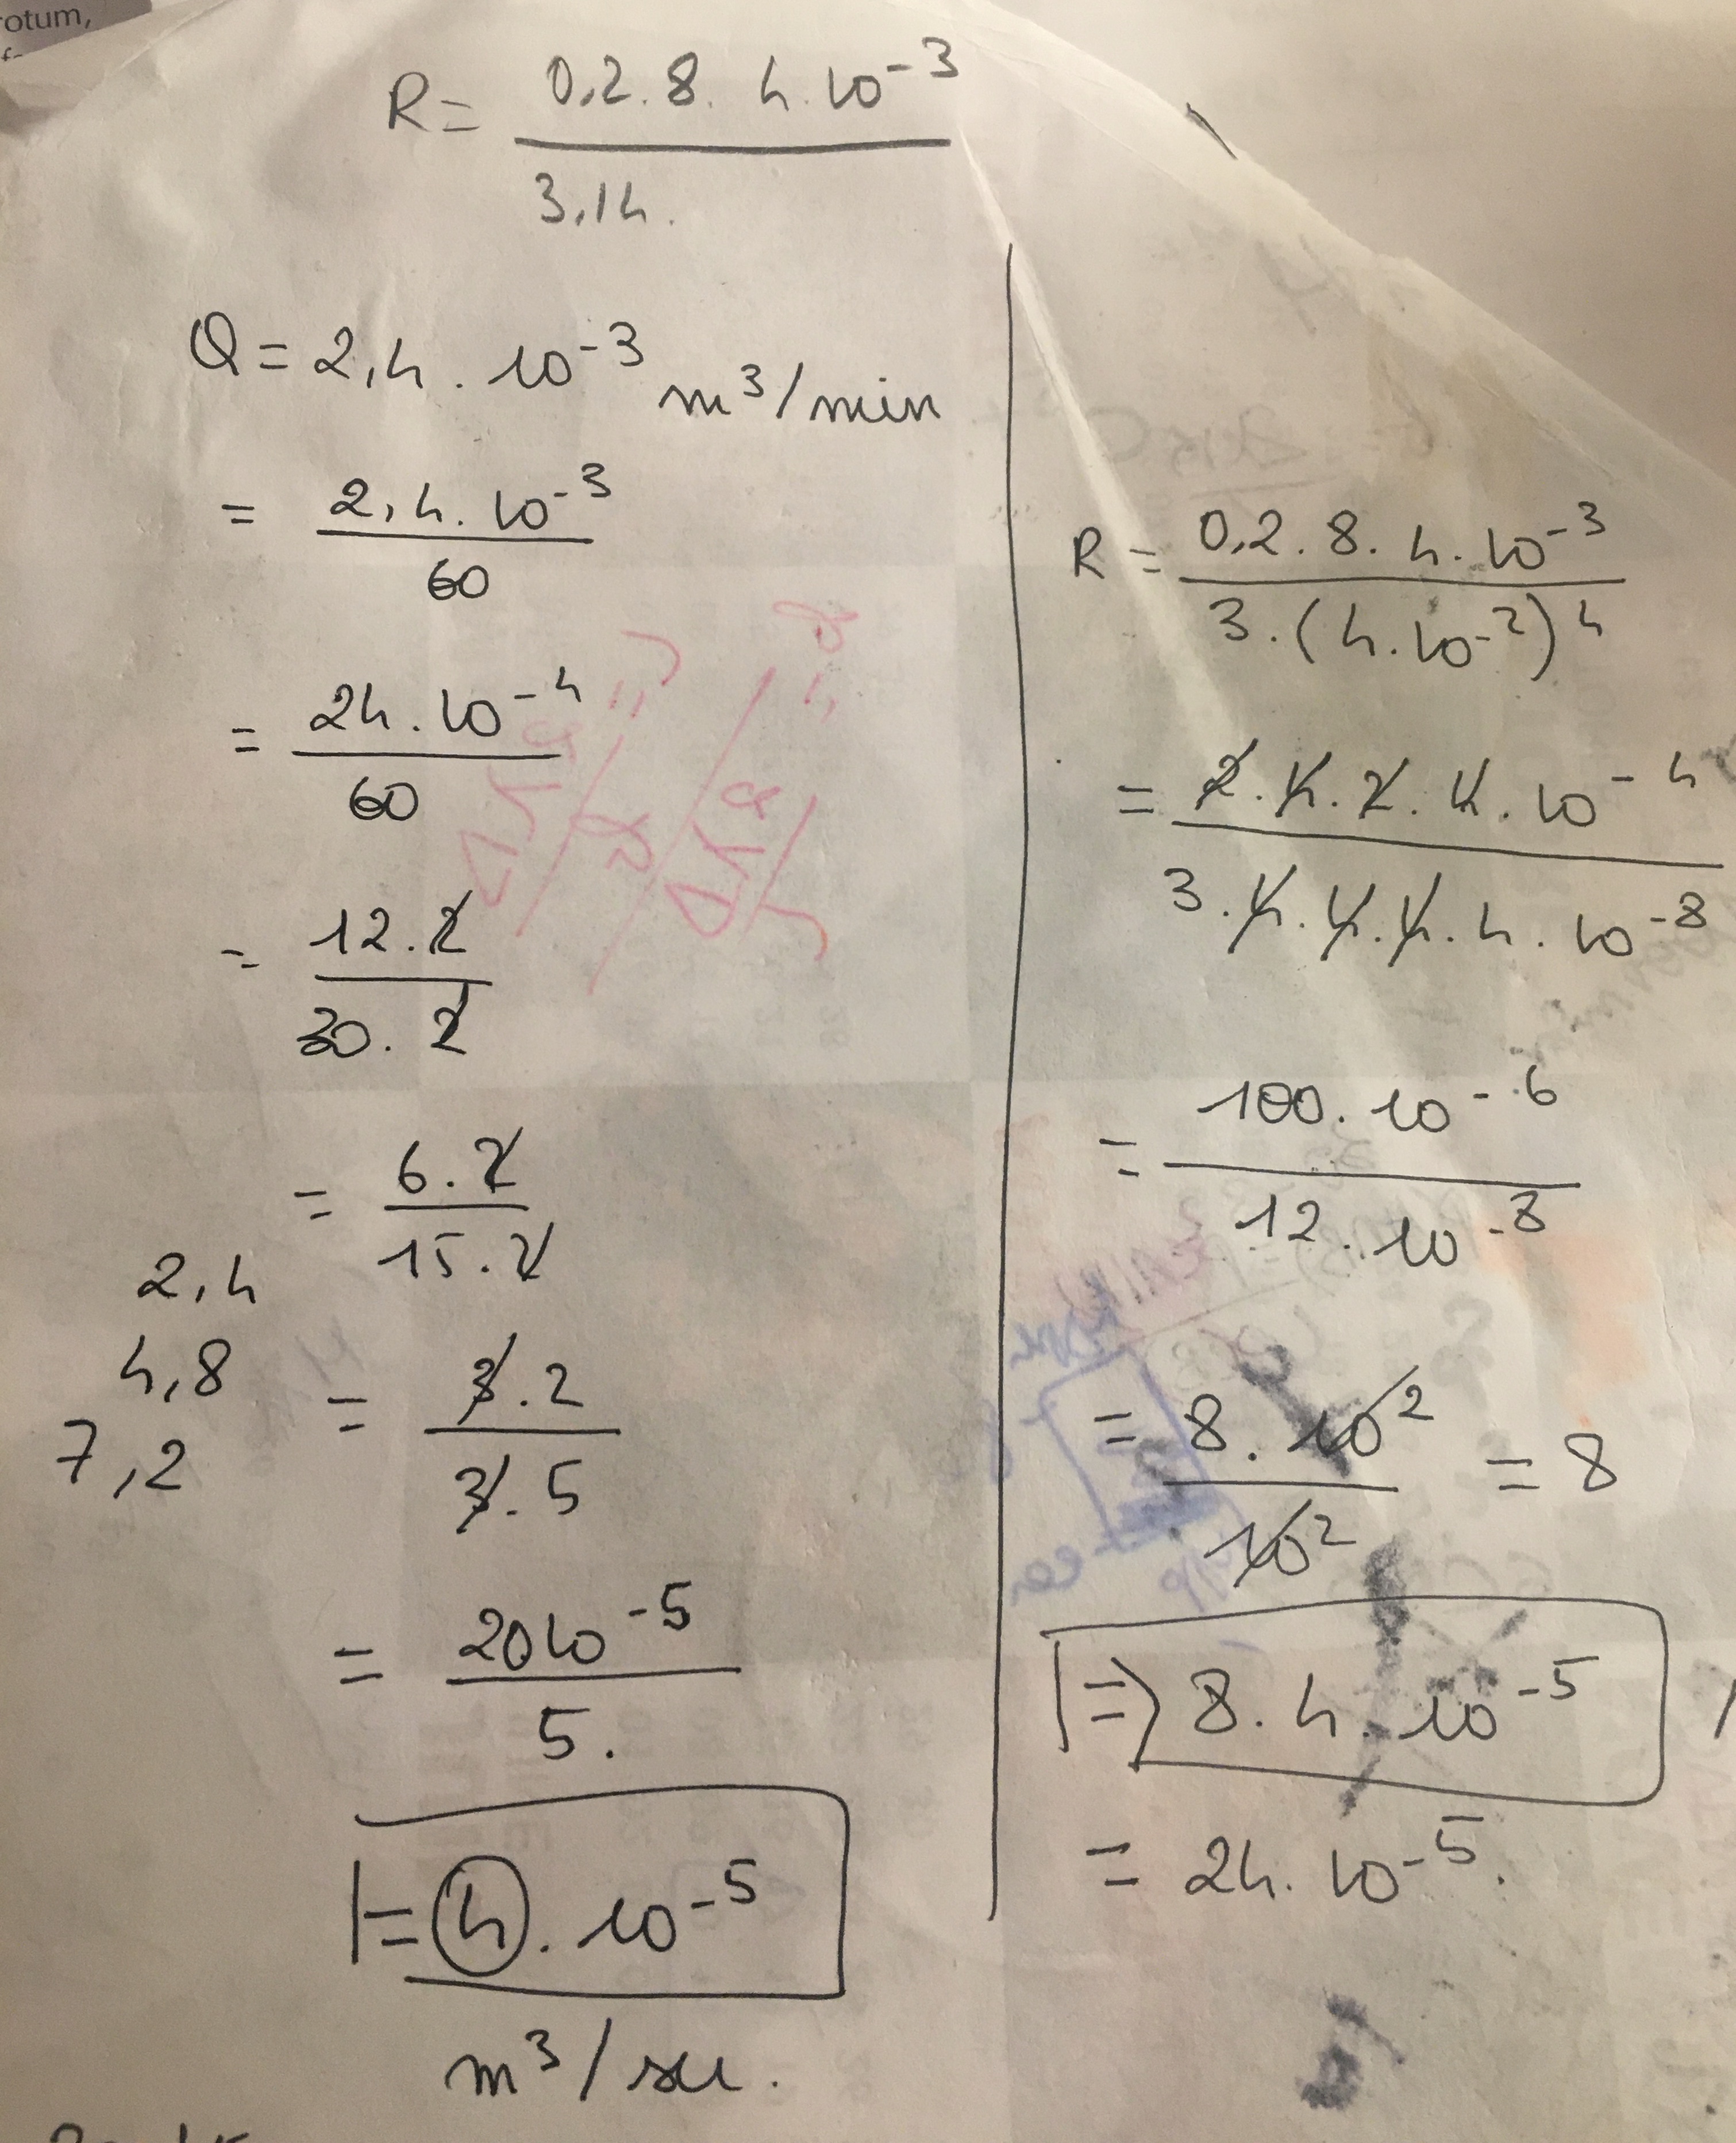 otum,
R = 0,2 . 8 . 4 . 10⁻³
3,14 .
Q = 2,4 . 10⁻³ m³/min
= 2,4 . 10⁻³
60
= 24 . 10⁻⁴
60
= 12 . 2
30 . 2
= 6 . 2
15 . 2
2,4
4,8
7,2
= 3 . 2
3 . 5
= 20 10⁻⁵
5 .
|= 4 . 10⁻⁵
m³ / sec .
R = 0,2 . 8 . 4 . 10⁻³
3 . (4 . 10⁻²)⁴
= 2 . 4 . 2 . 4 . 10⁻⁴
3 . 4 . 4 . 4 . 4 . 10⁻⁸
= 100 . 10⁻⁶
12 . 10⁻⁸
= 8 . 10² = 8
10²
|=) 8 . 4 . 10⁻⁵
= 24 . 10⁻⁵ .